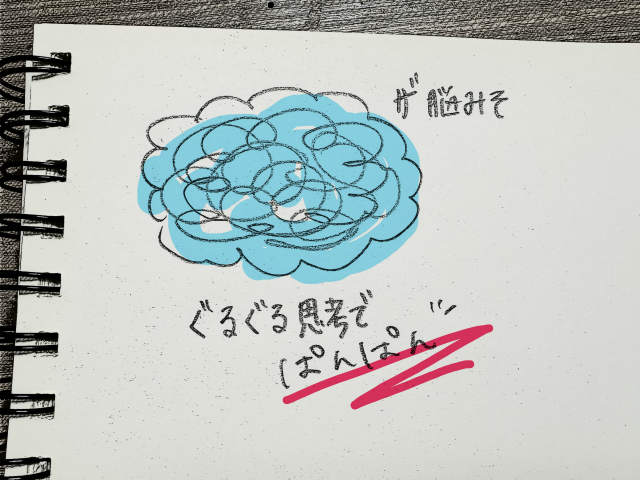 ザ脳みそ
ぐるぐる思考で
ぱんぱん